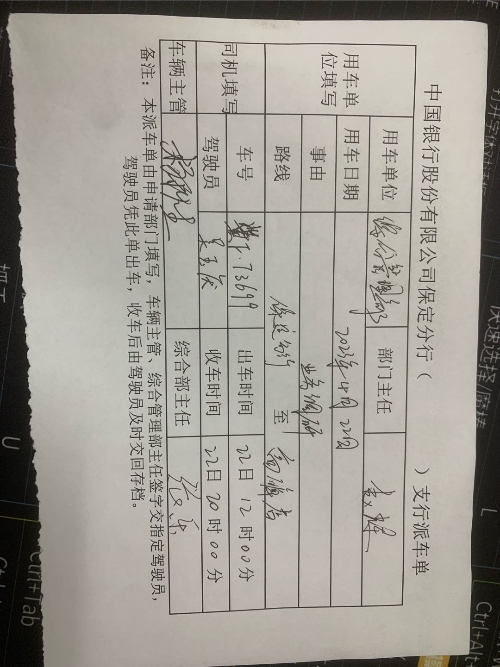 中国银行股份有限公司保定分行（ ）支行派车单
用车单位填写 用车单位 综合管理部 部门主任
用车日期 2023年4月22日
事由 业务调研
路线 保定分行 至 高碑店
司机填写 车号 冀F.73699 出车时间 22日12时00分
驾驶员 收车时间 22日20时00分
车辆主管 综合部主任
备注：本派车单由申请部门填写，车辆主管、综合管理部主任签字交指定驾驶员，
驾驶员凭此单出车，收车后由驾驶员及时交回存档。
U
L
Ctrl+Tab
Ctrl+Alt